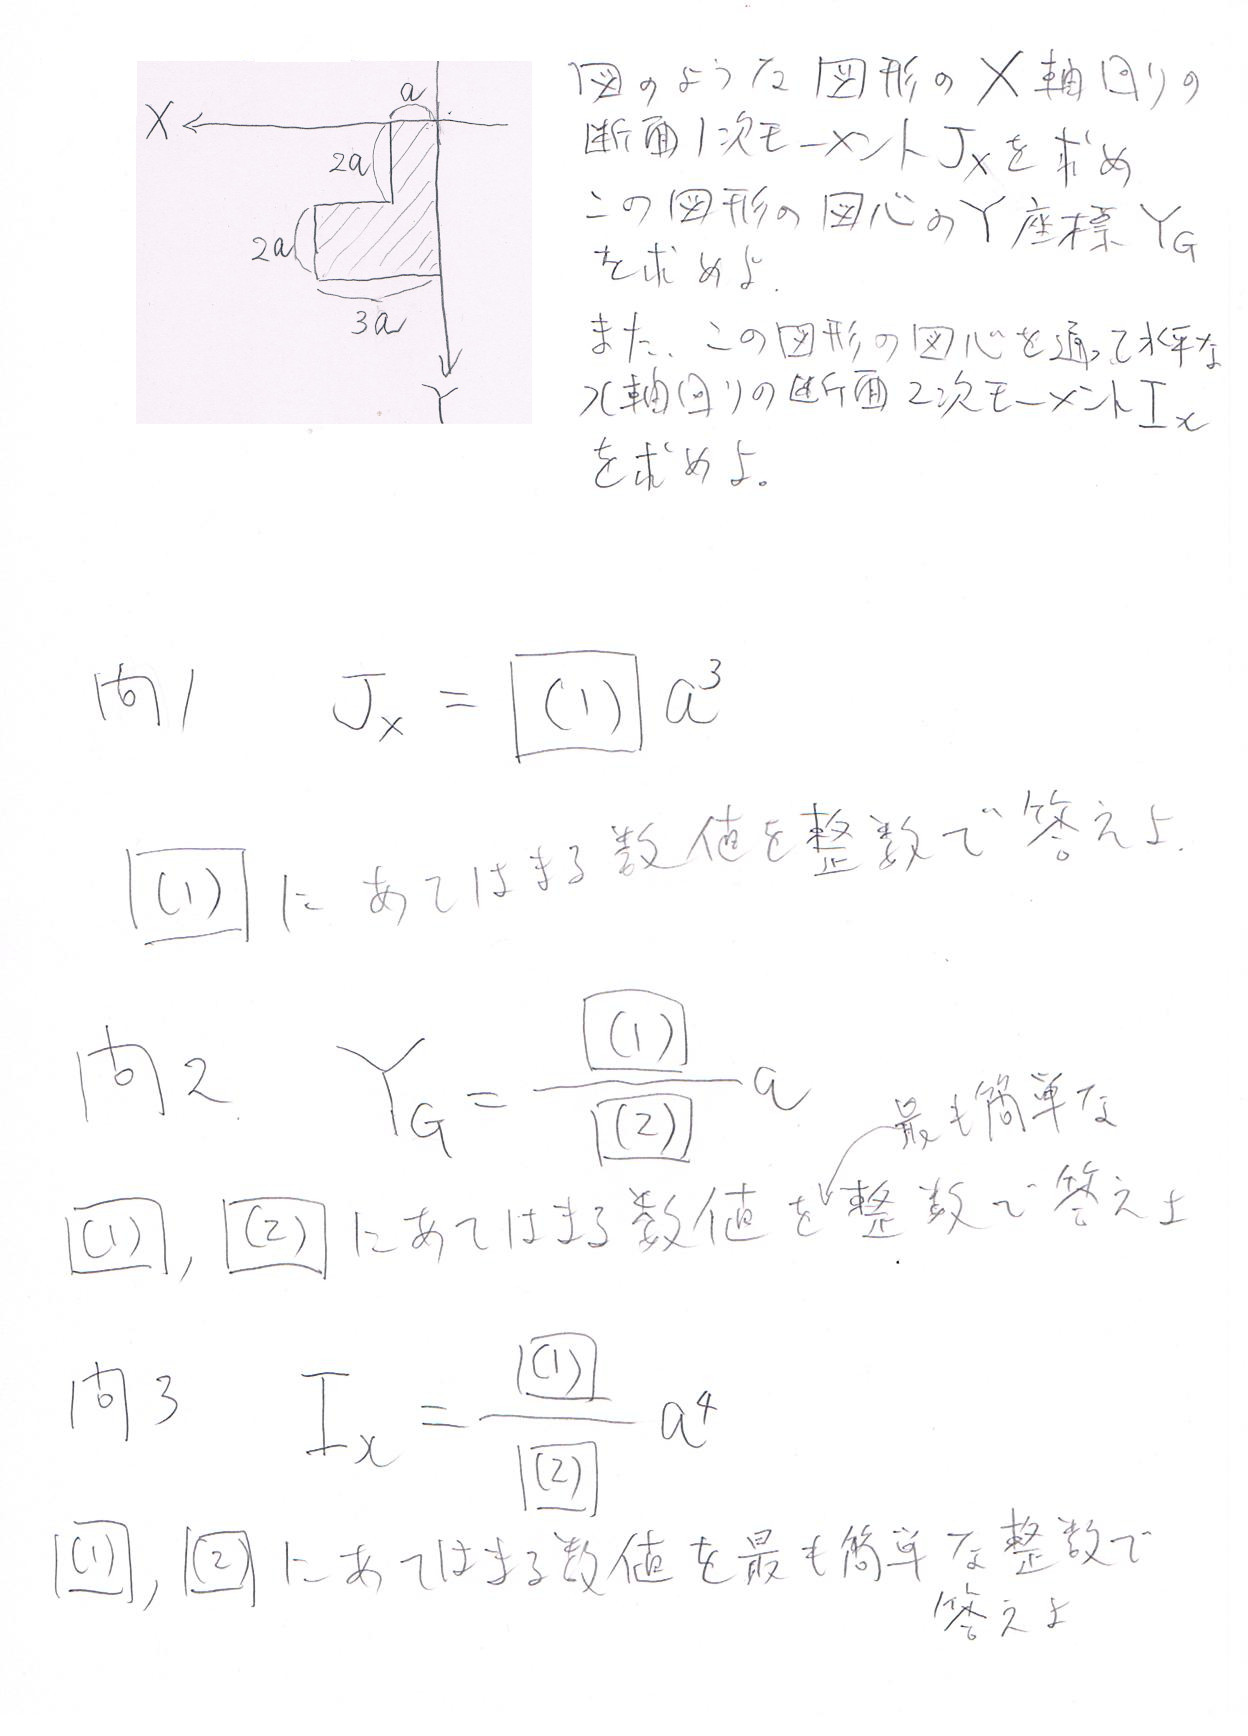 a
X
2a
2a
3a
Y
図のような図形のX軸回りの
断面1次モーメントJxを求め
この図形の図心のY座標YG
を求めよ.
また、この図形の図心を通って水平な
x軸回りの断面2次モーメントIx
を求めよ。
問1 Jx = (1) a³
(1) にあてはまる数値を整数で答えよ.
問2 YG = (1)/(2) a
最も簡単な
(1), (2) にあてはまる数値を整数で答えよ
問3 Ix = (1)/(2) a⁴
(1), (2) にあてはまる数値を最も簡単な整数で
答えよ